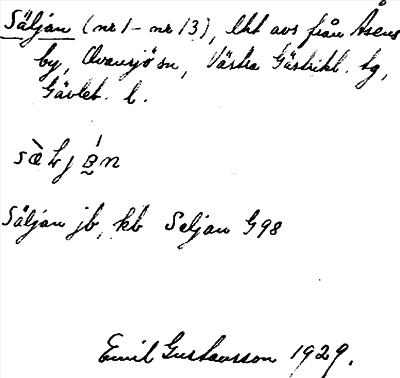 Säljan (nr 1 - nr 13), lht avs från Åsens
by, Ovansjö sn, Västra Gästrikl. tg,
Gävleb. l.
Säljan jb, kb Seljan G98
Emil Gustavsson 1929.